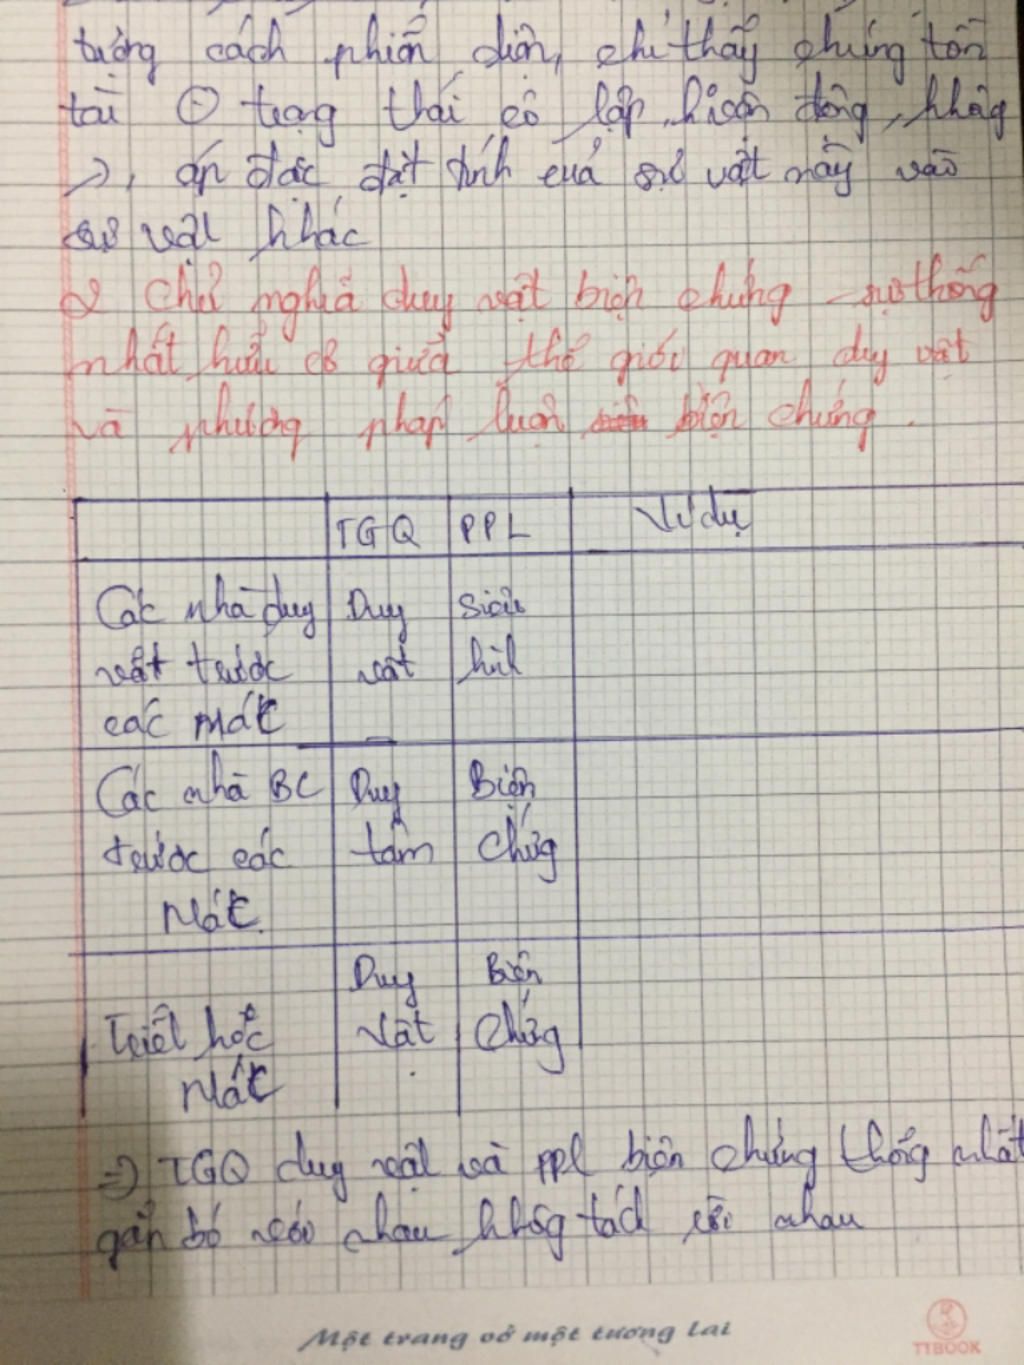 tượng cách phiến diện, chỉ thấy chúng tồn
tài ⊖ trạng thái cô lập, không
→, áp đặc đặt tính của sự vật này vào
sự vật khác
2 Chủ nghĩa duy vật biện chứng - sự thống
nhất hữu cơ giữa thế giới quan duy vật
và phương pháp luận biện chứng.
TGQ PPL Ví dụ
Các nhà duy Duy Siêu
vật trước vật hình
các Mác
Các nhà BC Duy Biện
trước các tâm Chứg
Mác.
Duy Biện
Triết học Vật Chứg
Mác
=> TGQ duy vật và ppl biện chứng thốg nhất
gắn bó với nhau khôg tách rời nhau
Một trang vở một tương lai
TTBOOK